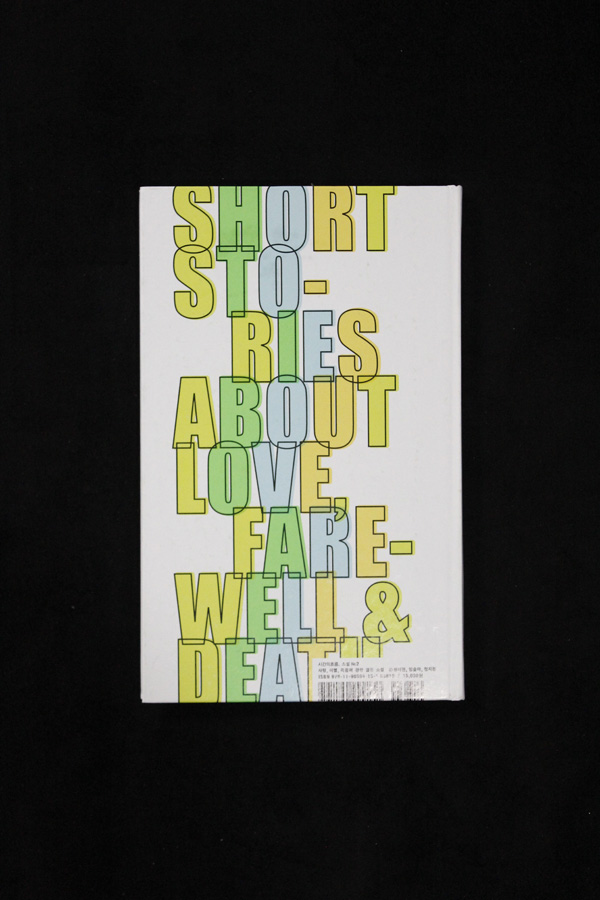 SHORT
STO-
RIES
ABOUT
LOVE,
FARE-
WELL &
DEATH